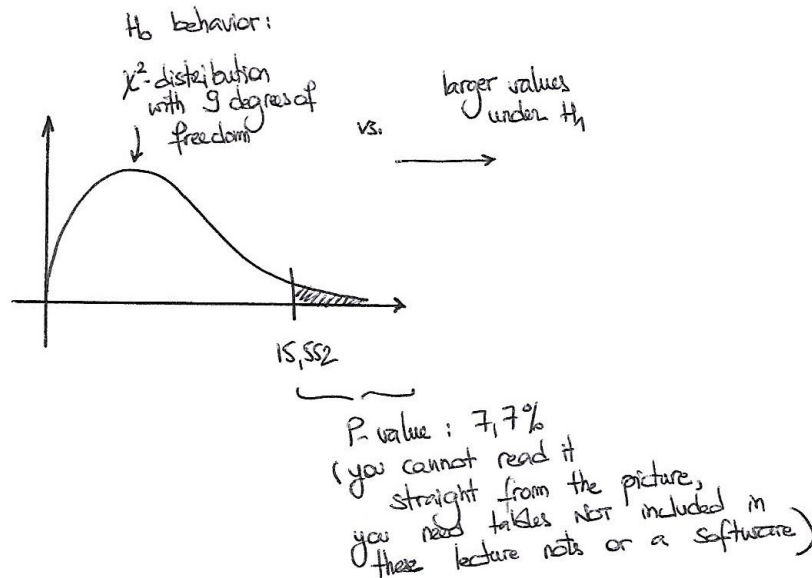 H₀ behavior:
χ²-distribution
with 9 degrees of
freedom
vs.
larger values
under H₁
15,552
P-value : 7,7%
(you cannot read it
straight from the picture,
you need tables NOT included in
these lecture nots or a software)